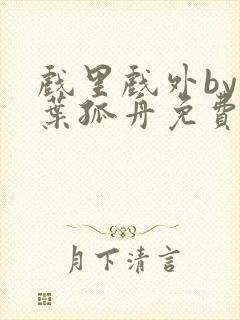 戲里戲外by
葉孤舟免費
月下清言